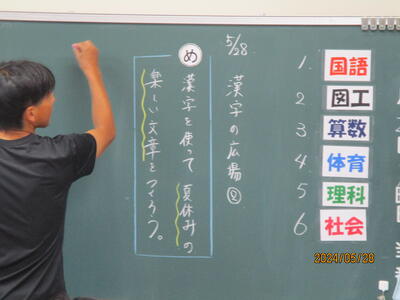 5/28
漢字の広場②
め
漢字を使って夏休みの
楽しい文章をつくろう。
1. 国語
2 図工
3 算数
4 体育
5 理科
6 社会
2024/05/28